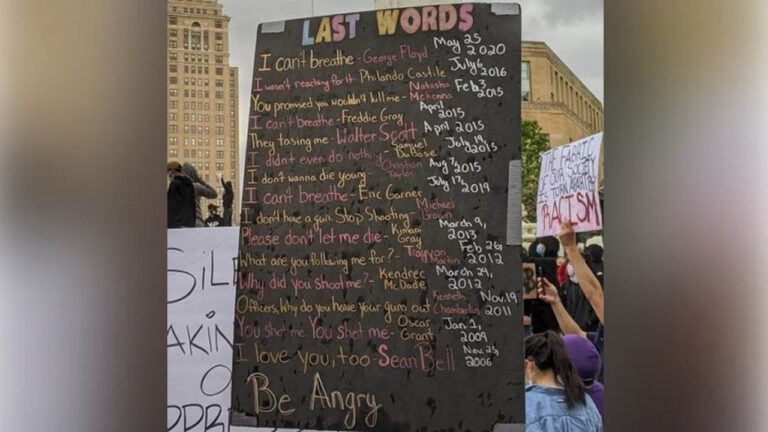 LAST WORDS
I can't breathe - George Floyd May 25 2020
I wasn't reaching for it - Philando Castile July 6 2016
You promised you wouldn't kill me - Natasha Mckenna Feb 3 2015
I can't breathe - Freddie Gray April 2015
They tasing me - Walter Scott April 2015
I didn't even do nothing - Samuel DuBose July 19, 2015
I don't wanna die young - Christian Taylor Aug 7, 2015
I can't breathe - Eric Garner July 17, 2019
I don't have a gun. Stop Shooting - Michael Brown
Please don't let me die - Kimani Gray March 9, 2013
What are you following me for? - Trayvon Martin Feb 26, 2012
Why did you shoot me? - Kendrec McDade March 24, 2012
Officers, Why do you have your guns out - Kenneth Chamberlin Nov. 19 2011
You shot me You shot me - Oscar Grant Jan. 1, 2009
I love you, too - Sean Bell Nov. 25, 2006
Be Angry
SILE
AKIN
O
OPPR
OUR SOCIETY
IS TORN APART BY
RACISM